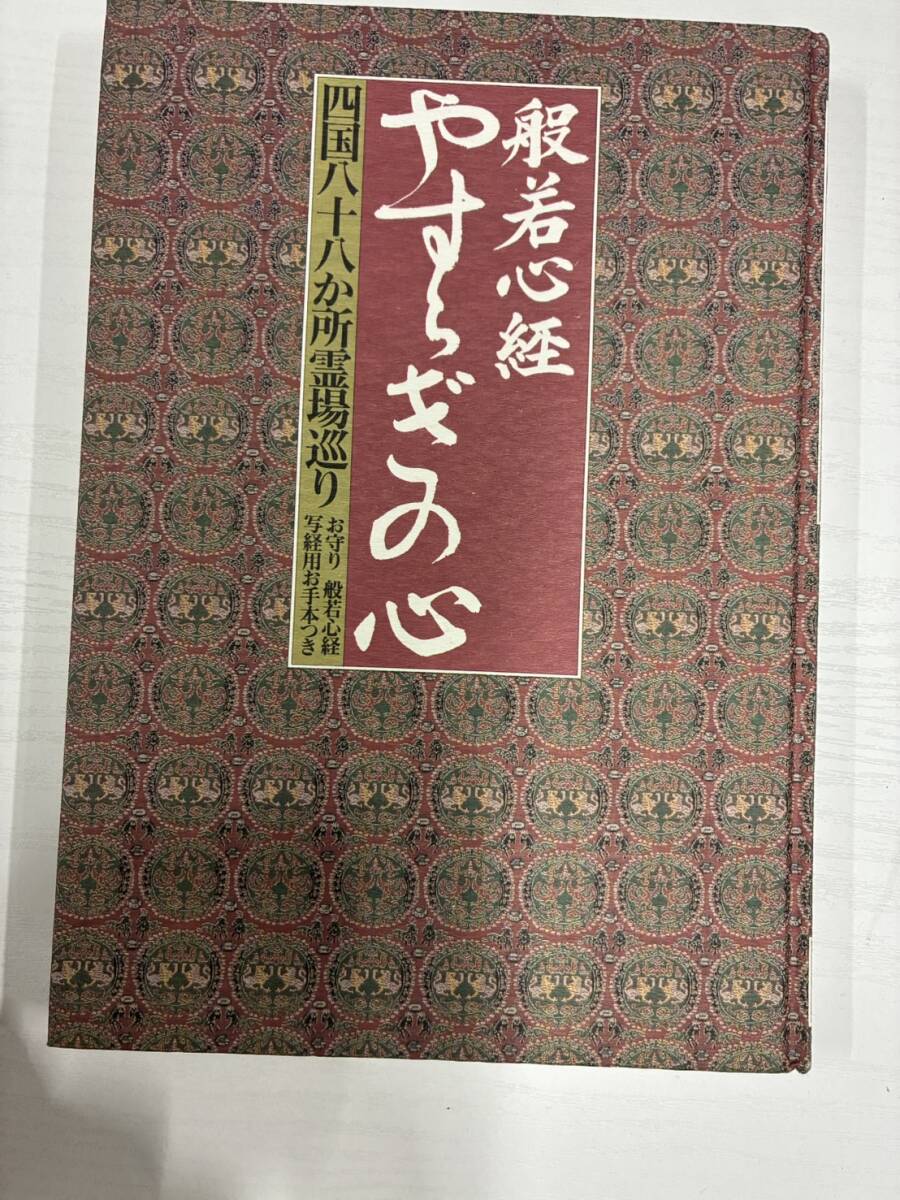 般若心経
やすらぎの心
四国八十八か所霊場巡り
お守り 般若心経
写経用お手本つき